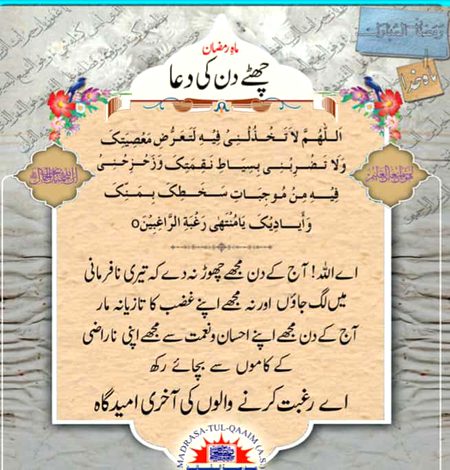 ماہِ رمضان
چھٹے دن کی دعا
اَللّٰهُمَّ لاَ تَخْذُلْنِیْ فِیْهِ لِتَعَرُّضِ مَعْصِیَتِکَ
وَلاَ تَضْرِبْنِیْ بِسِیَاطِ نَقِمَتِکَ وَزَحْزِحْنِیْ
فِیْهِ مِنْ مُوْجِبَاتِ سَخَطِکَ بِمَنِّکَ
وَأَیَادِیْکَ یَامُنْتَهٰی رَغْبَةِ الرَّاغِبِیْنَ o
اے اللہ! آج کے دن مجھے چھوڑ نہ دے کہ تیری نافرمانی
میں لگ جاؤں اور نہ مجھے اپنے غضب کا تازیانہ مار
آج کے دن مجھے اپنے احسان و نعمت سے مجھے اپنی ناراضی
کے کاموں سے بچائے رکھ
اے رغبت کرنے والوں کی آخری امید گاہ
MADRASA-TUL-QAAIM (A.S)